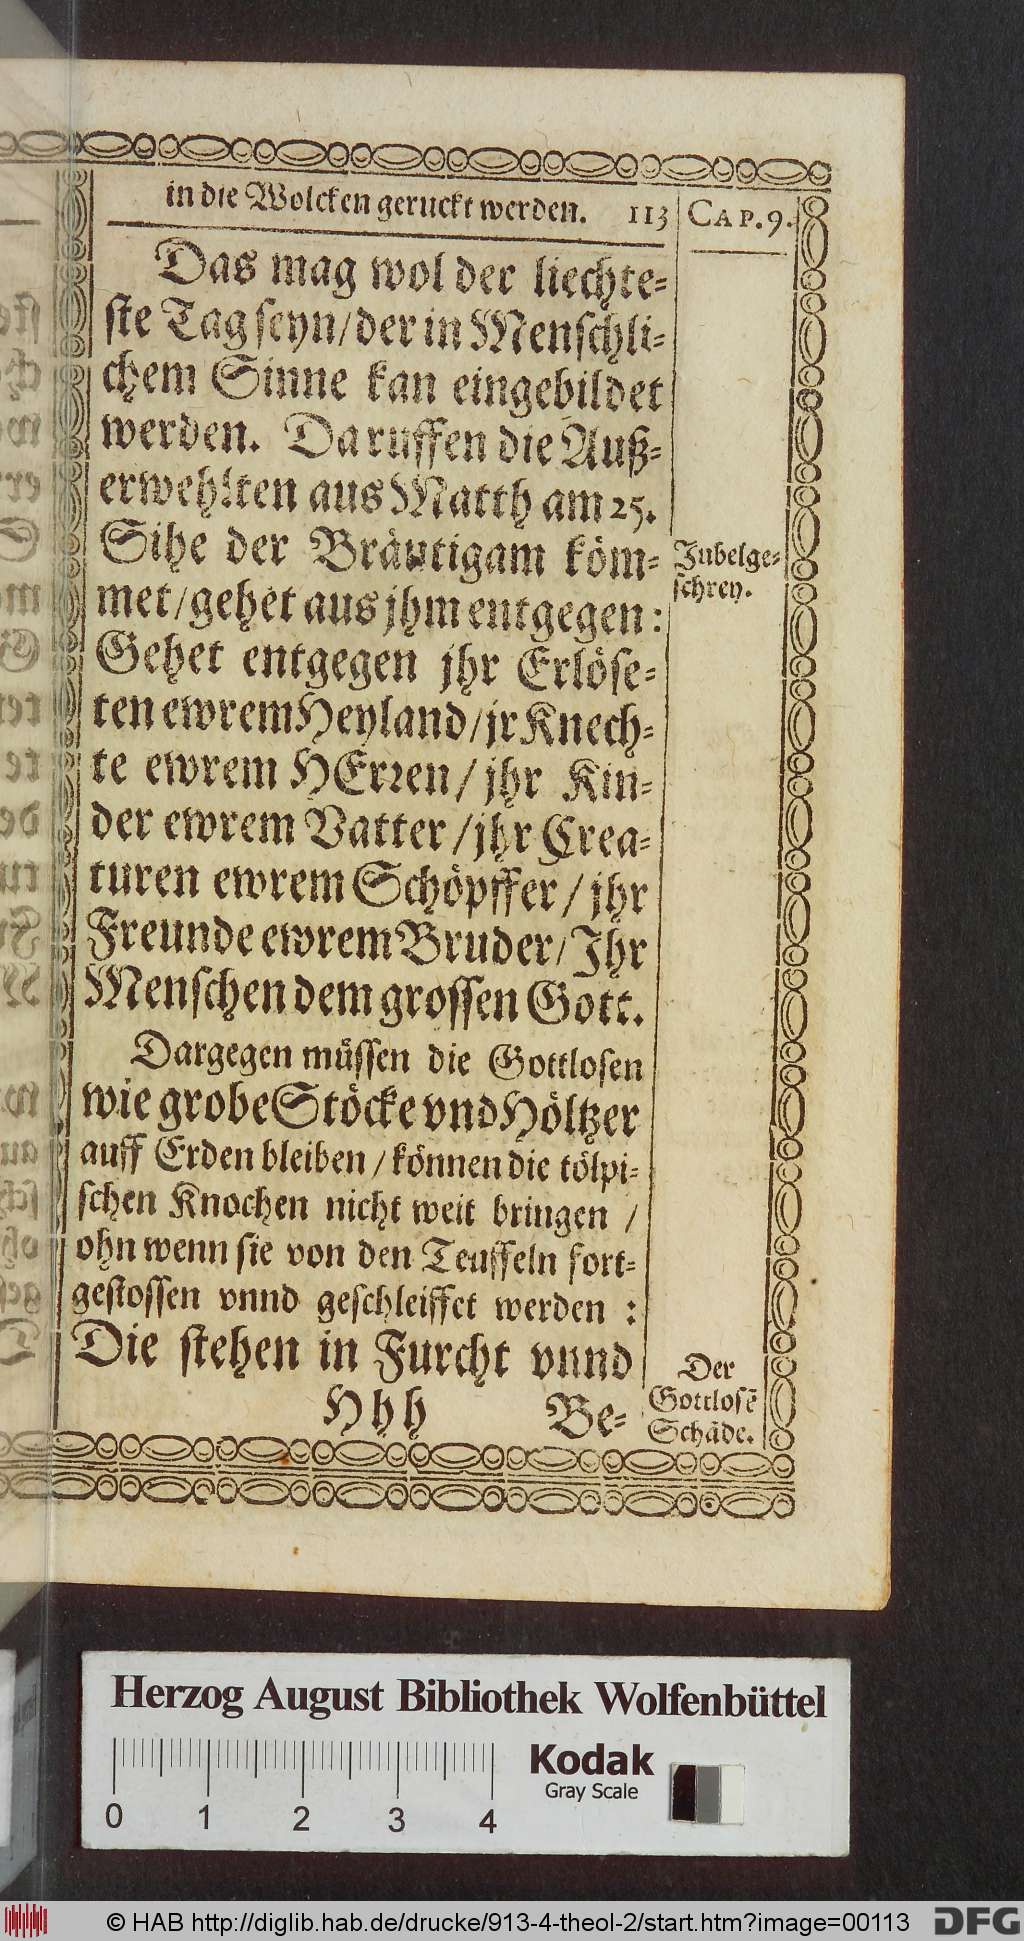 in die Wolcken geruckt werden. 113 CAP. 9.
Das mag wol der liechte⸗
ste Tag seyn/ der in Menschli⸗
chem Sinne kan eingebildet
werden. Da ruffen die Auß⸗
erwehlten aus Matth am 25.
Sihe der Bräutigam köm⸗
met/ gehet aus jhm entgegen:
Gehet entgegen jhr Erlöse⸗
ten ewrem Heyland/ jr Knech⸗
te ewrem HErren/ jhr Kin⸗
der ewrem Vatter/ jhr Crea⸗
turen ewrem Schöpffer/ jhr
Freunde ewrem Bruder/ Jhr
Menschen dem grossen Gott.
Dargegen müssen die Gottlosen
wie grobe Stöcke vnd Höltzer
auff Erden bleiben/ können die tölpi⸗
schen Knochen nicht weit bringen/
ohn wenn sie von den Teuffeln fort⸗
gestossen vnnd geschleiffet werden:
Die stehen in Furcht vnnd
Hhh Be⸗
Jubelge⸗
schrey.
Der
Gottlosē
Schäde.
Herzog August Bibliothek Wolfenbüttel
Kodak
Gray Scale
0 1 2 3 4
© HAB http://diglib.hab.de/drucke/913-4-theol-2/start.htm?image=00113
DFG